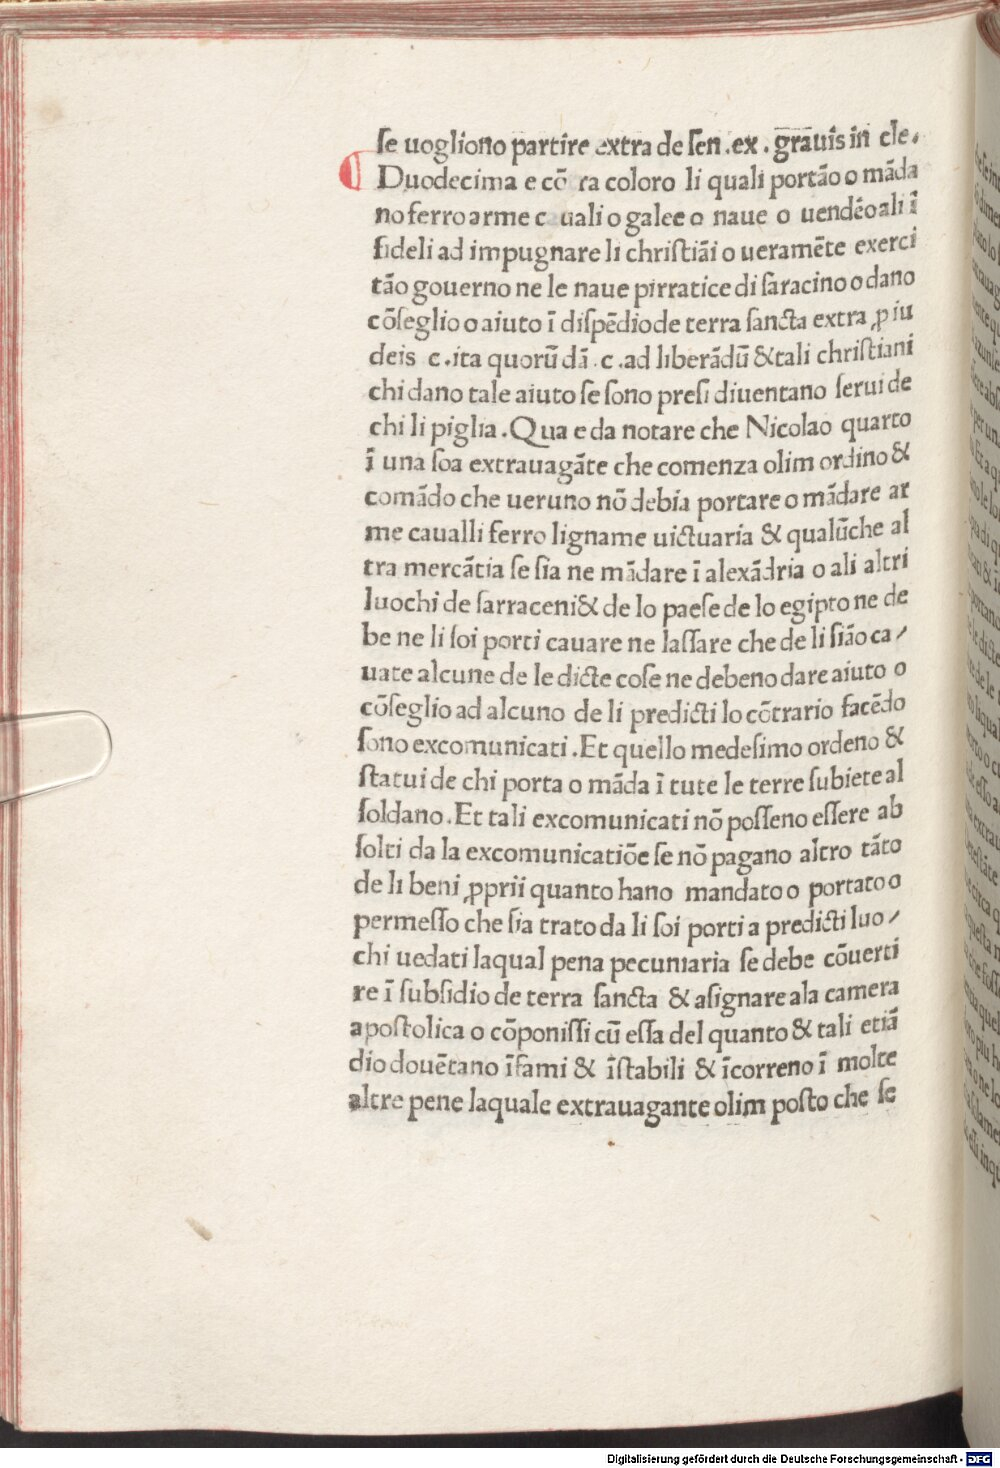 ſe uogliono partire extra de ſen .ex . grāuis in cle.
Duodecima e cō ra coloro li quali portāo o māda
no ferro arme c uali o galee o naue o uendēo ali ī
fideli ad impugnare li chriſtiāi o ueramēte exerci
tāo gouerno ne le naue pirratice di ſaracino o dano
cōſeglio o aiuto ī diſpēdio de terra ſancta extra ꝓ iu
deis c. ita quorū dā .c .ad liberādū & tali chriſtiani
chi dano tale aiuto ſe ſono preſi diuentano ſerui de
chi li piglia . Qua e da notare che Nicolao quarto
ī una ſoa extrauagāte che comenza olim ordino &
comādo che ueruno nō debia portare o mādare ar
me caualli ferro ligname uictuaria & qualūche al
tra mercātia ſe ſia ne mādare ī alexādria o ali altri
luochi de ſarraceni & de lo paeſe de lo egipto ne de
be ne li ſoi porti cauare ne laſſare che de li ſiāo ca /
uate alcune de le dicte coſe ne debeno dare aiuto o
cōſeglio ad alcuno de li predicti lo cōtrario facēdo
ſono excomunicati . Et quello medeſimo ordeno &
ſtatui de chi porta o māda ī tute le terre ſubiete al
ſoldano . Et tali excomunicati nō poſſeno eſſere ab
ſolti da la excomunicatiōe ſe nō pagano altro tāto
de li beni ꝓprii quanto hano mandato o portato o
permeſſo che ſia trato da li ſoi porti a predicti luo /
chi uedati laqual pena pecuniaria ſe debe cōuerti
re ī ſubſidio de terra ſancta & aſignare ala camera
apoſtolica o cōponiſſi cū eſſa del quanto & tali etiā
dio douētano īfami & īſtabili & īcorreno ī molte
altre pene laquale extrauagante olim poſto che ſe
Digitalisierung gefördert durch die Deutsche Forschungsgemeinschaft - DFG